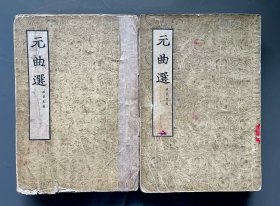 元曲選
元曲選